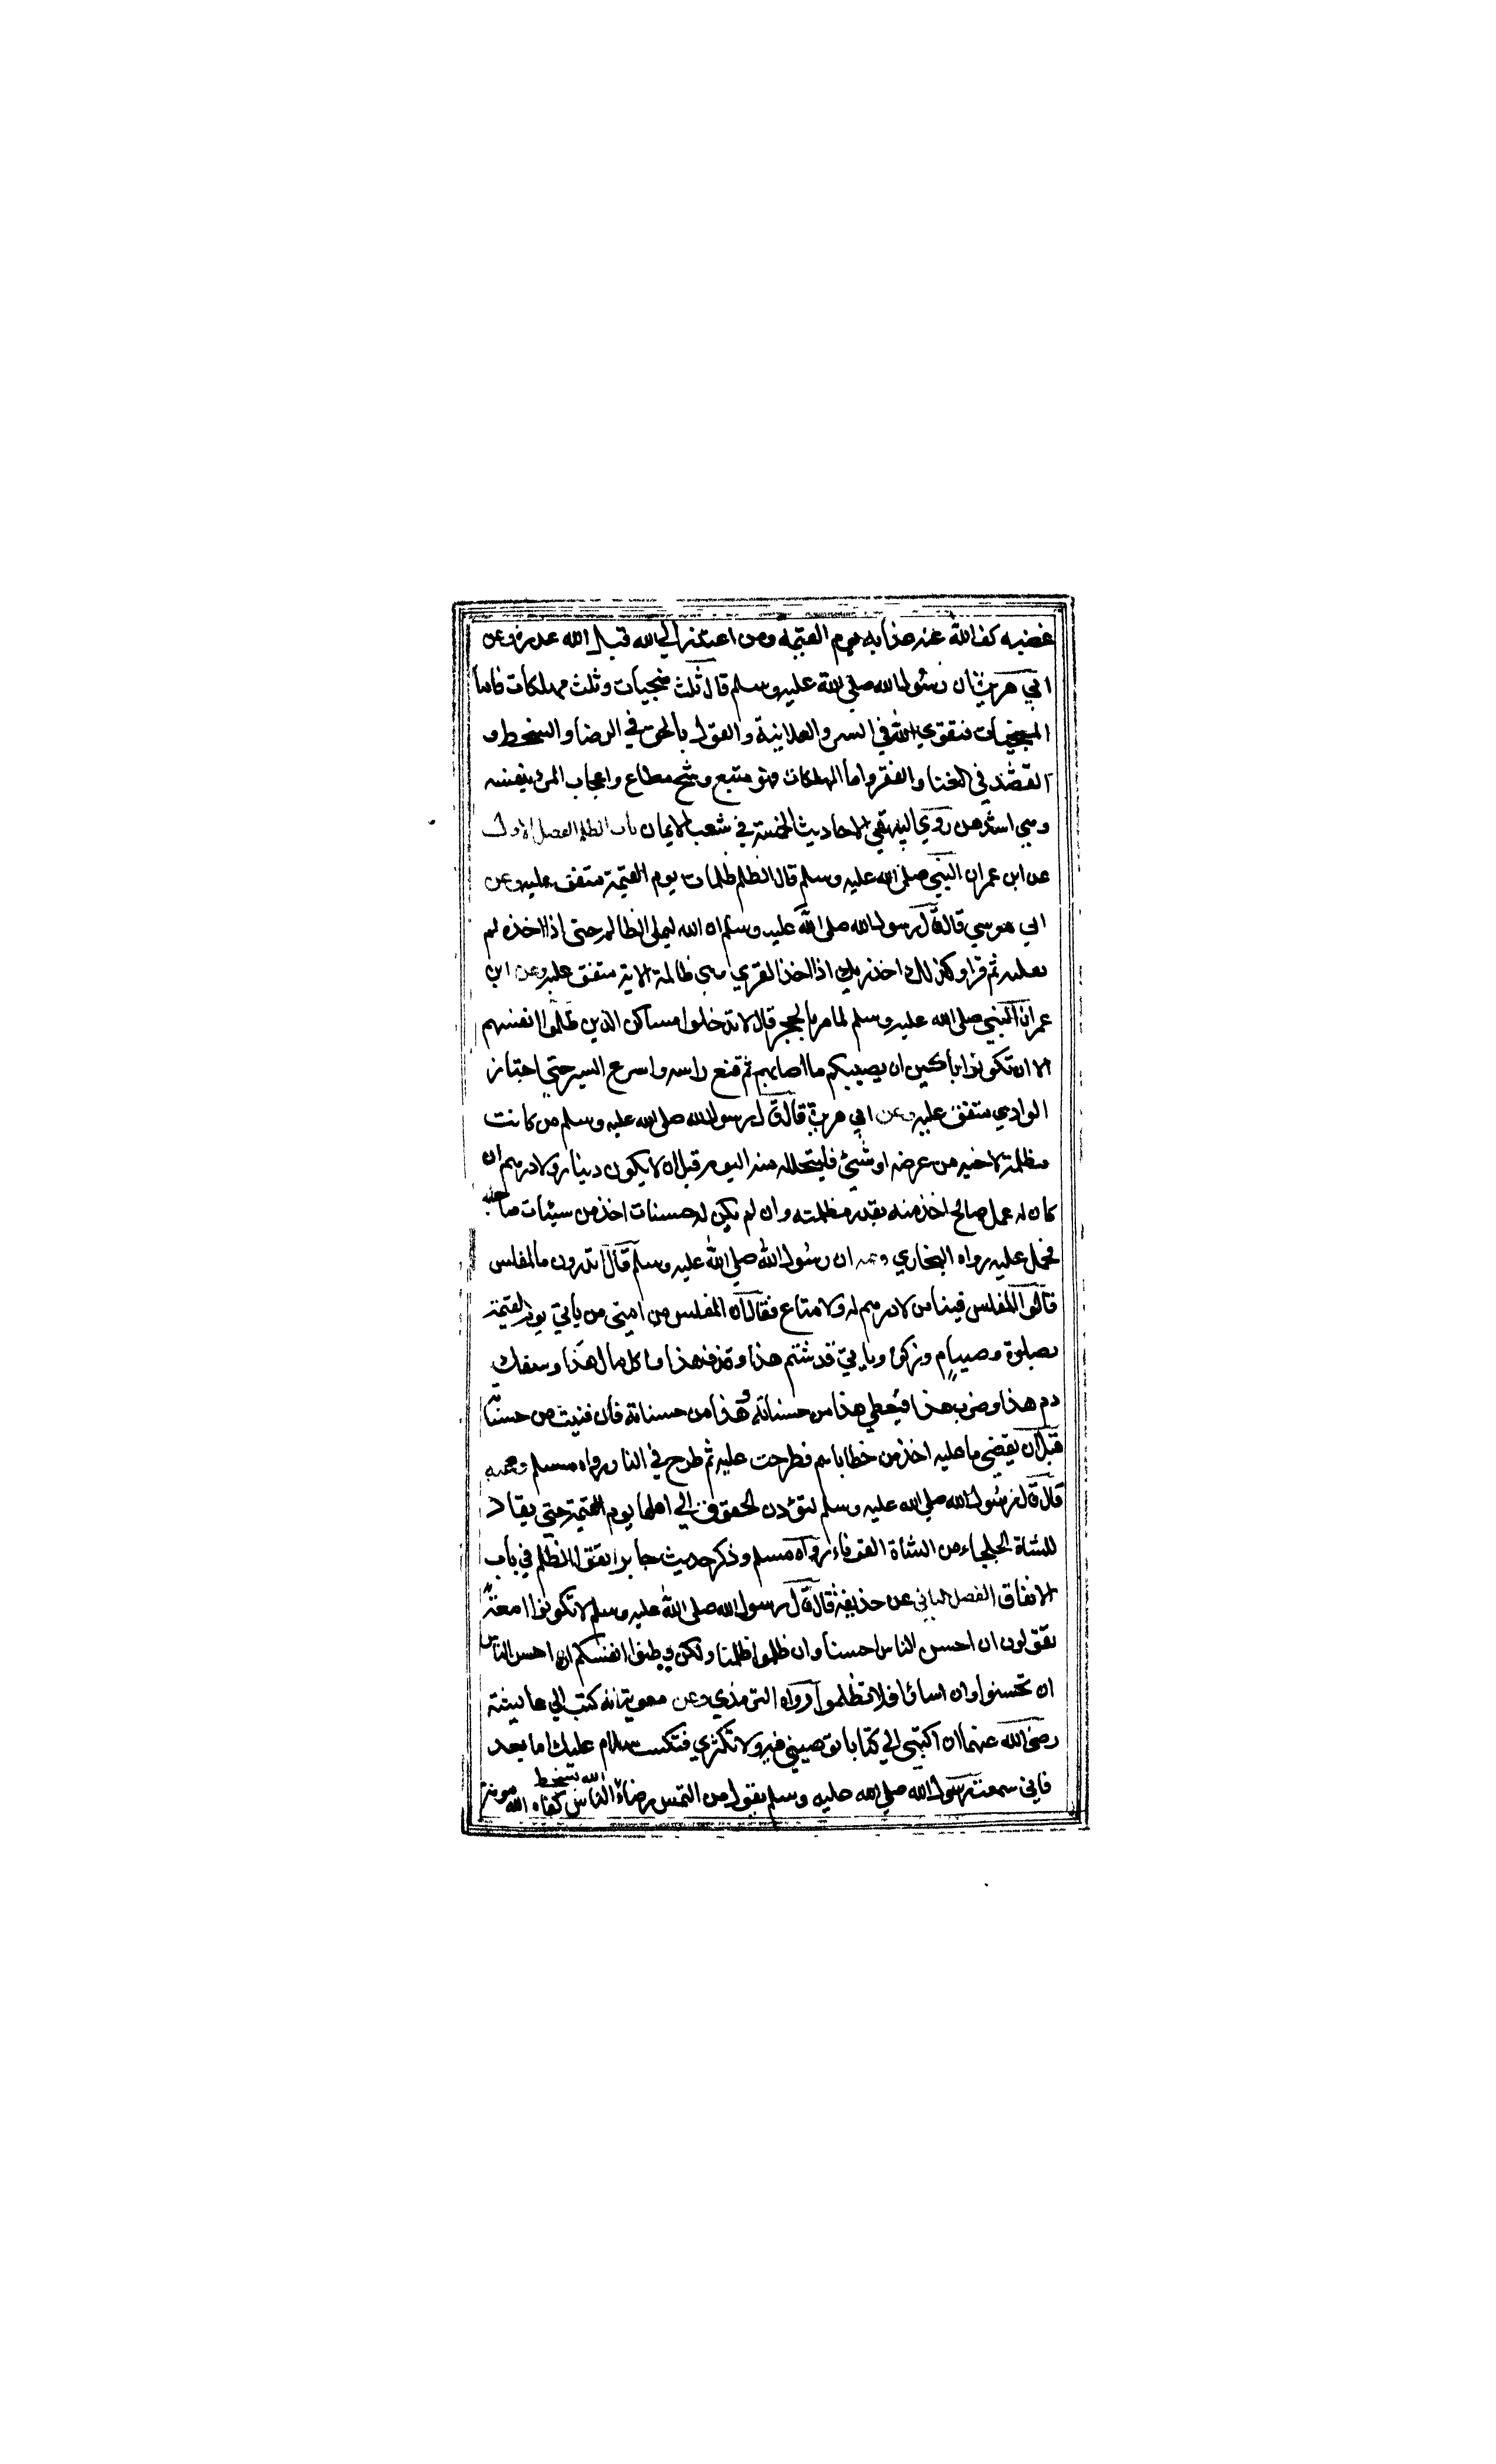 غضبه كف الله عنه عذابه يوم القيمة ومن اعتذر الي الله قبل الله عذره وعن
ابي هريرة ان رسول الله صلي الله عليه وسلم قال ثلث منجيات وثلث مهلكات فاما
المنجيات فتقوي الله في السر والعلانية والقول بالحق في الرضا والسخط و
القصد في الغنا والفقر واما المهلكات فهو متبع وشح مطاع واعجاب المرء بنفسه
وهي اشدهن روي البيهقي الاحاديث الخمسة في شعب الايمان باب الظلم الفصل الاول
عن ابن عمر ان النبي صلى الله عليه وسلم قال الظلم ظلمات يوم القيمة متفق عليه وعن
ابي موسي قال قال رسول الله صلى الله عليه وسلم ان الله ليملي الظالم حتى اذا اخذه لم
يفلته ثم قرا وكذلك اخذ ربك اذا اخذ القري وهي ظالمة الاية متفق عليه وعن ابن
عمر ان النبي صلى الله عليه وسلم لما مر بالحجر قال لا تدخلوا مساكن الذين ظلموا انفسهم
الا ان تكونوا باكين ان يصيبكم ما اصابهم ثم قنع راسه واسرع السير حتي اجتاز
الوادي متفق عليه وعن ابي هريرة قال قال رسول الله صلى الله عليه وسلم من كانت
مظلمة لاخيه من عرضه او شيئ فليتحلله منه اليوم قبل ان لا يكون دينار ولا درهم ان
كان له عمل صالح اخذ منه بقدر مظلمته وان لم تكن له حسنات اخذ من سيئات صاحبه
فحمل عليه رواه البخاري وعنه ان رسول الله صلي الله عليه وسلم قال اتدرون ما المفلس
قالوا المفلس فينا من لا درهم له ولا متاع فقال ان المفلس من امتي من ياتي يوم القيمة
بصلوة وصيام وزكوة وياتي قد شتم هذا وقذف هذا واكل مال هذا وسفك
دم هذا وضرب هذا فيعطي هذا من حسناته وهذا من حسناته فان فنيت من حسناته
قبل ان يقضي ما عليه اخذ من خطاياهم فطرحت عليه ثم طرح في النار رواه مسلم وعنه
قال قال رسول الله صلي الله عليه وسلم لتؤدن الحقوق الي اهلها يوم القيمة حتي يقاد
للشاة الجلجاء من الشاة القرناء رواه مسلم وذكر حديث جابر اتقوا الظلم في باب
الانفاق الفصل الثاني عن حذيفة قال قال رسول الله صلى الله عليه وسلم لا تكونوا امعة
تقولون ان احسن الناس احسنا وان ظلموا ظلمنا ولكن وطنوا انفسكم ان احسن الناس
ان تحسنوا وان اساؤا فلا تظلموا رواه الترمذي وعن معوية انه كتب الي عايشة
رضي الله عنهما ان اكتبي الي كتابا توصيني فيه ولا تكثري فكتبت سلام عليك اما بعد
فاني سمعت رسول الله صلي الله عليه وسلم يقول من التمس رضاء الله بسخط الناس كفاه الله مونة